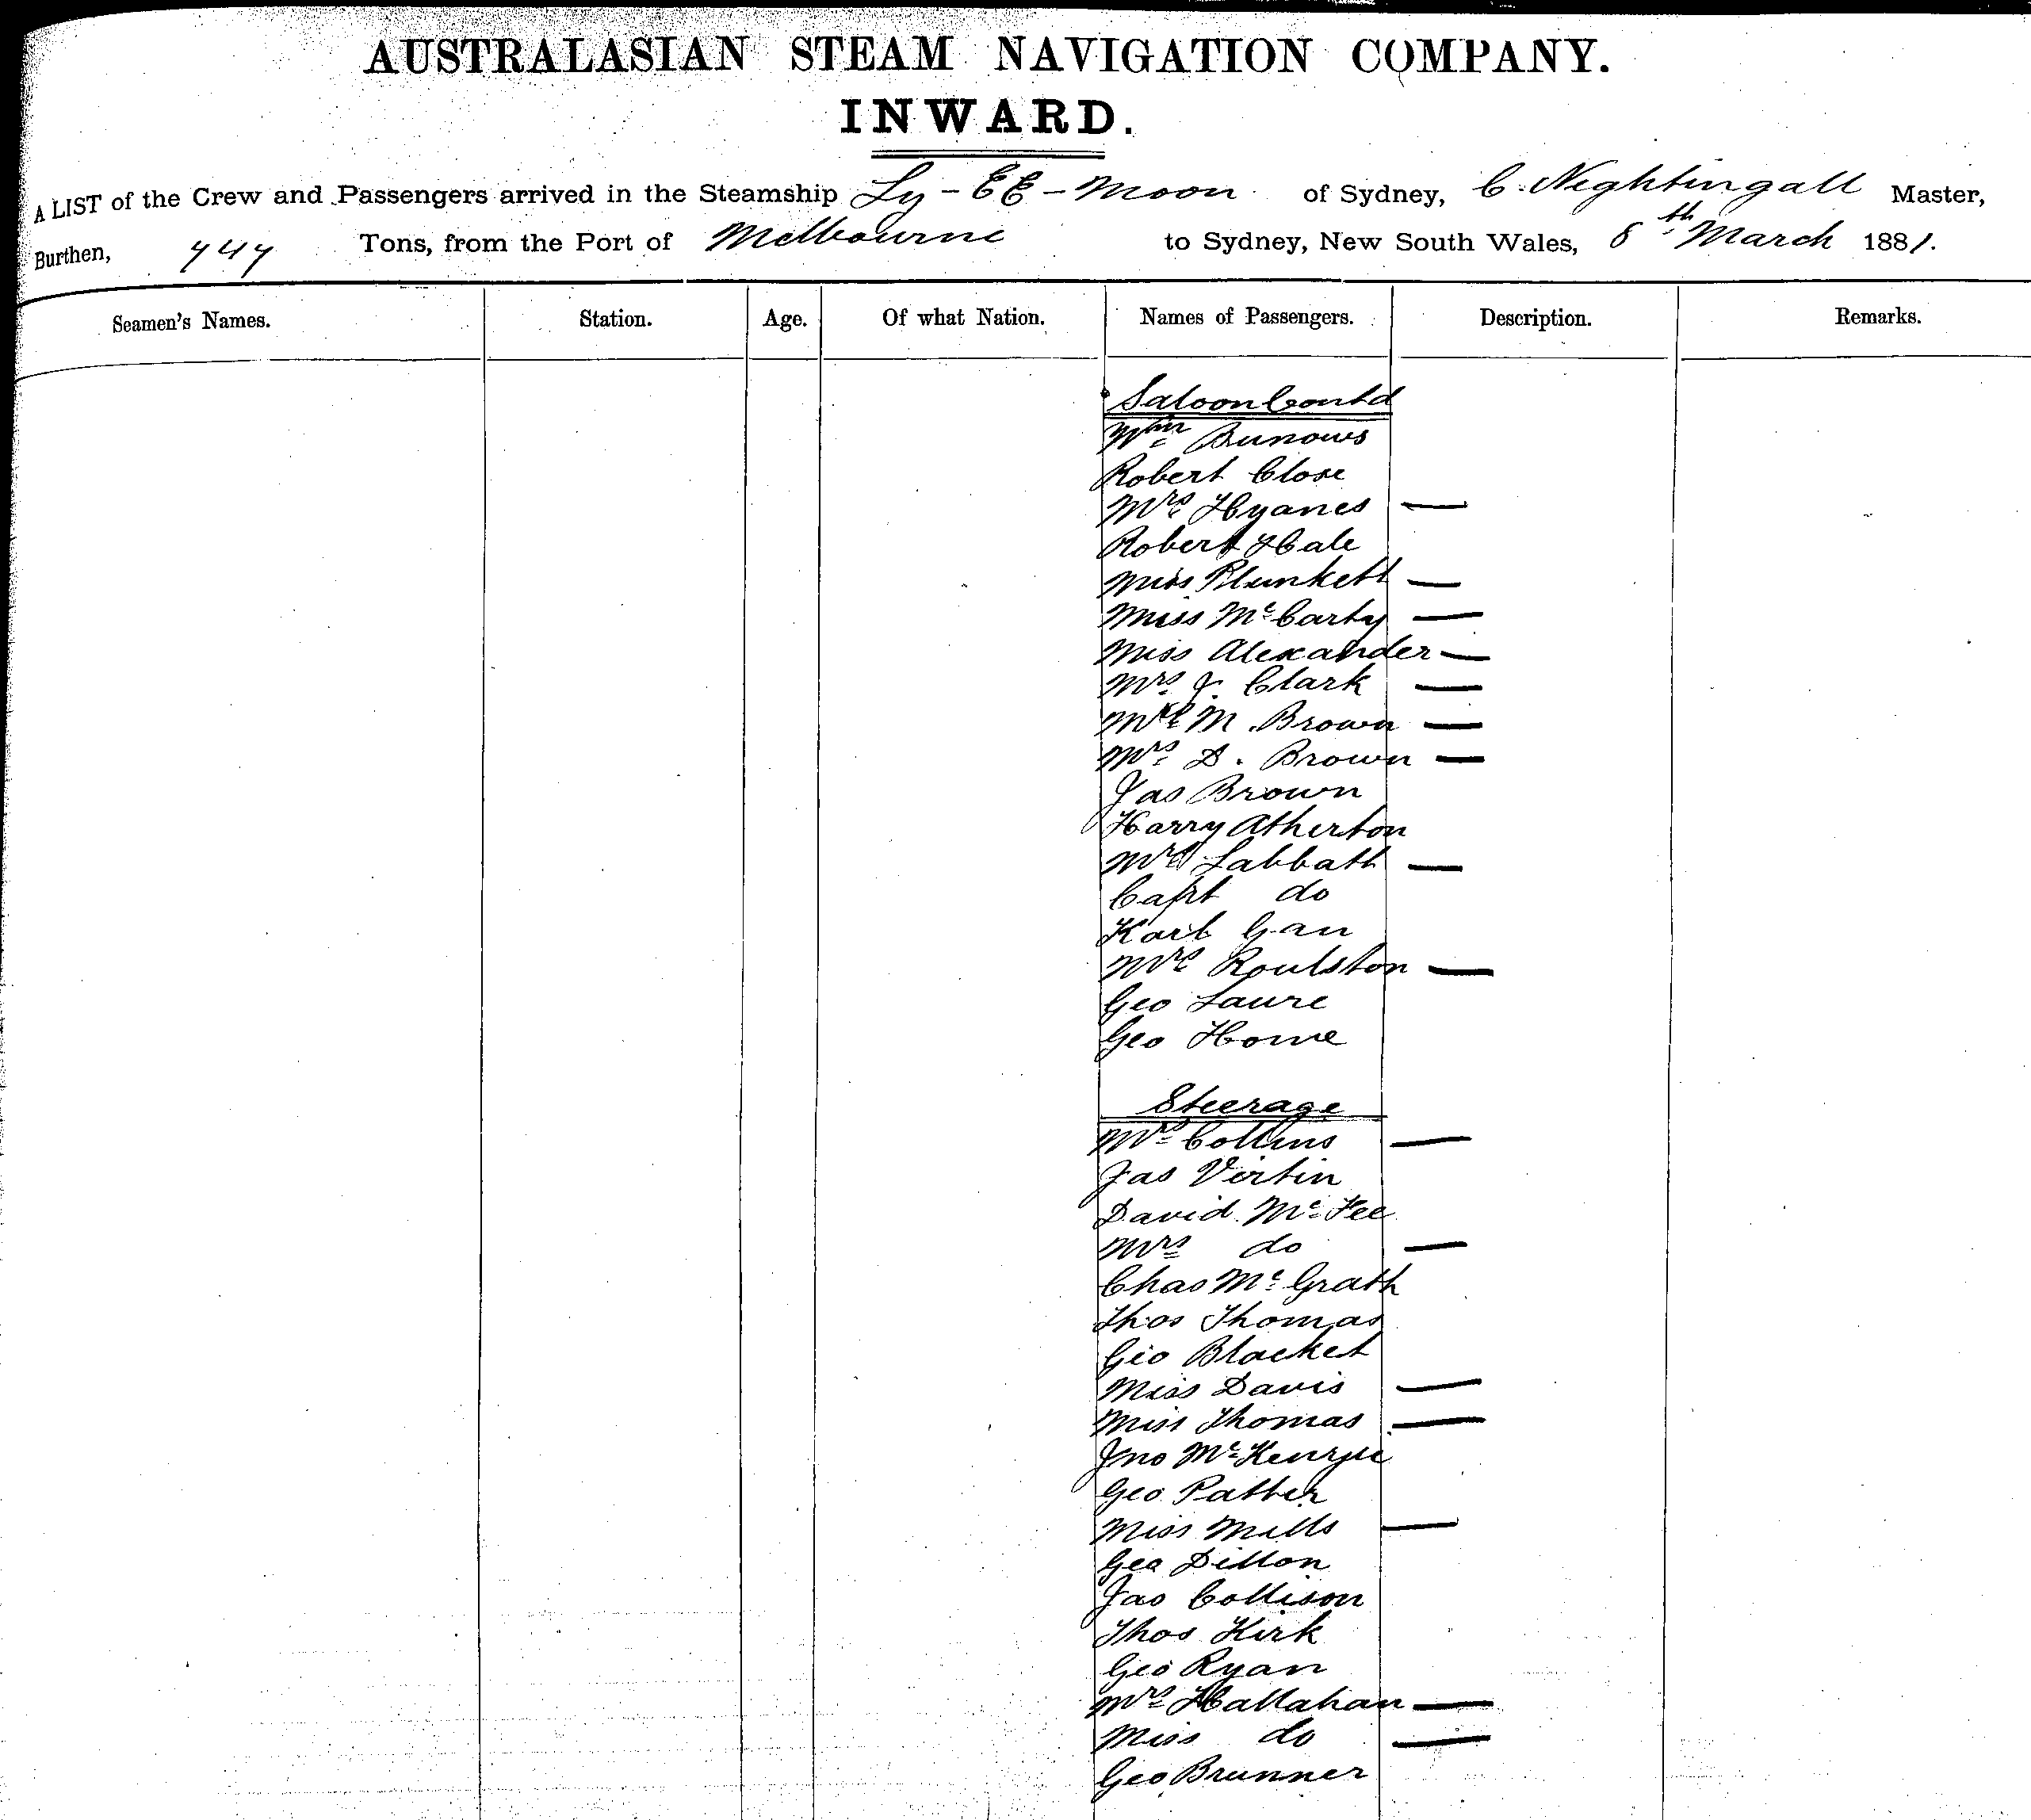 AUSTRALASIAN STEAM NAVIGATION COMPANY.
INWARD.
A LIST of the Crew and Passengers arrived in the Steamship Ly-EE-Moon of Sydney, C. Nightingall Master,
Burthen, 747 Tons, from the Port of Melbourne to Sydney, New South Wales, 8th March 1881.
Seamen's Names. Station. Age. Of what Nation. Names of Passengers. Description. Remarks.
Saloon Contd
Wm Burrows
Robert Close
Mrs Hyanes —
Robert Hale
Miss Plunkett —
Miss McCarty —
Miss Alexander —
Mrs J. Clark —
Mrs M. Brown —
Mrs D. Brown —
Jas Brown
Harry Atherton
Mrs Labbath —
Capt do
Karl Gau
Mrs Roulston —
Geo Laure
Geo Horne
Steerage
Mrs Collins —
Jas Virtin
David McFee
Mrs do —
Chas McGrath
Thos Thomas
Geo Blacket
Miss Davis —
Miss Thomas —
Jno McKenzie
Geo Patter
Miss Mills —
Geo Dillon
Jas Collison
Thos Kirk
Geo Ryan
Mrs Hallahan —
Miss do —
Geo Brunner